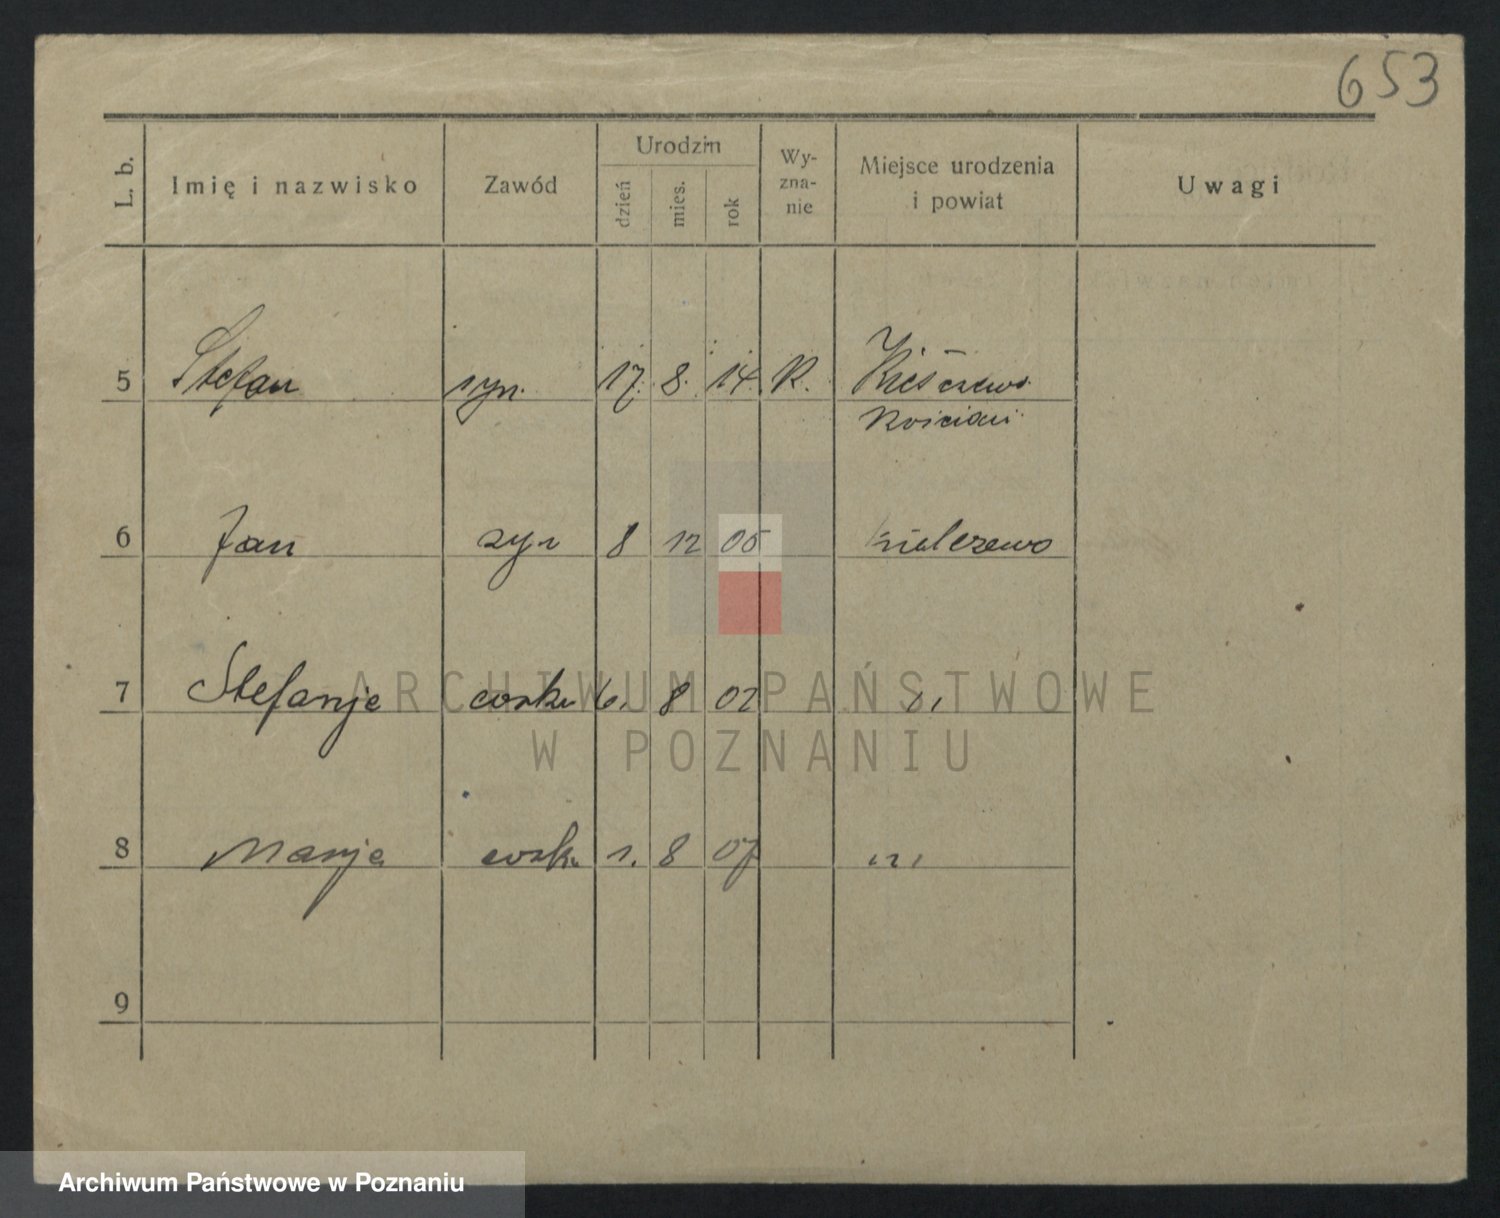 653
L. b.
Imię i nazwisko
Zawód
Urodzin
dzień
mies.
rok
Wy-
zna-
nie
Miejsce urodzenia
i powiat
Uwagi
5 Stefan syn. 17. 8. 14. K.
Kościan
6 Jan syn 8 12 05 Kiełczewo
7 Stefanje corka 6. 8 02 "
8 Marja corka 1. 8 07 "
9
ARCHIWUM PAŃSTWOWE
W POZNANIU
Archiwum Państwowe w Poznaniu